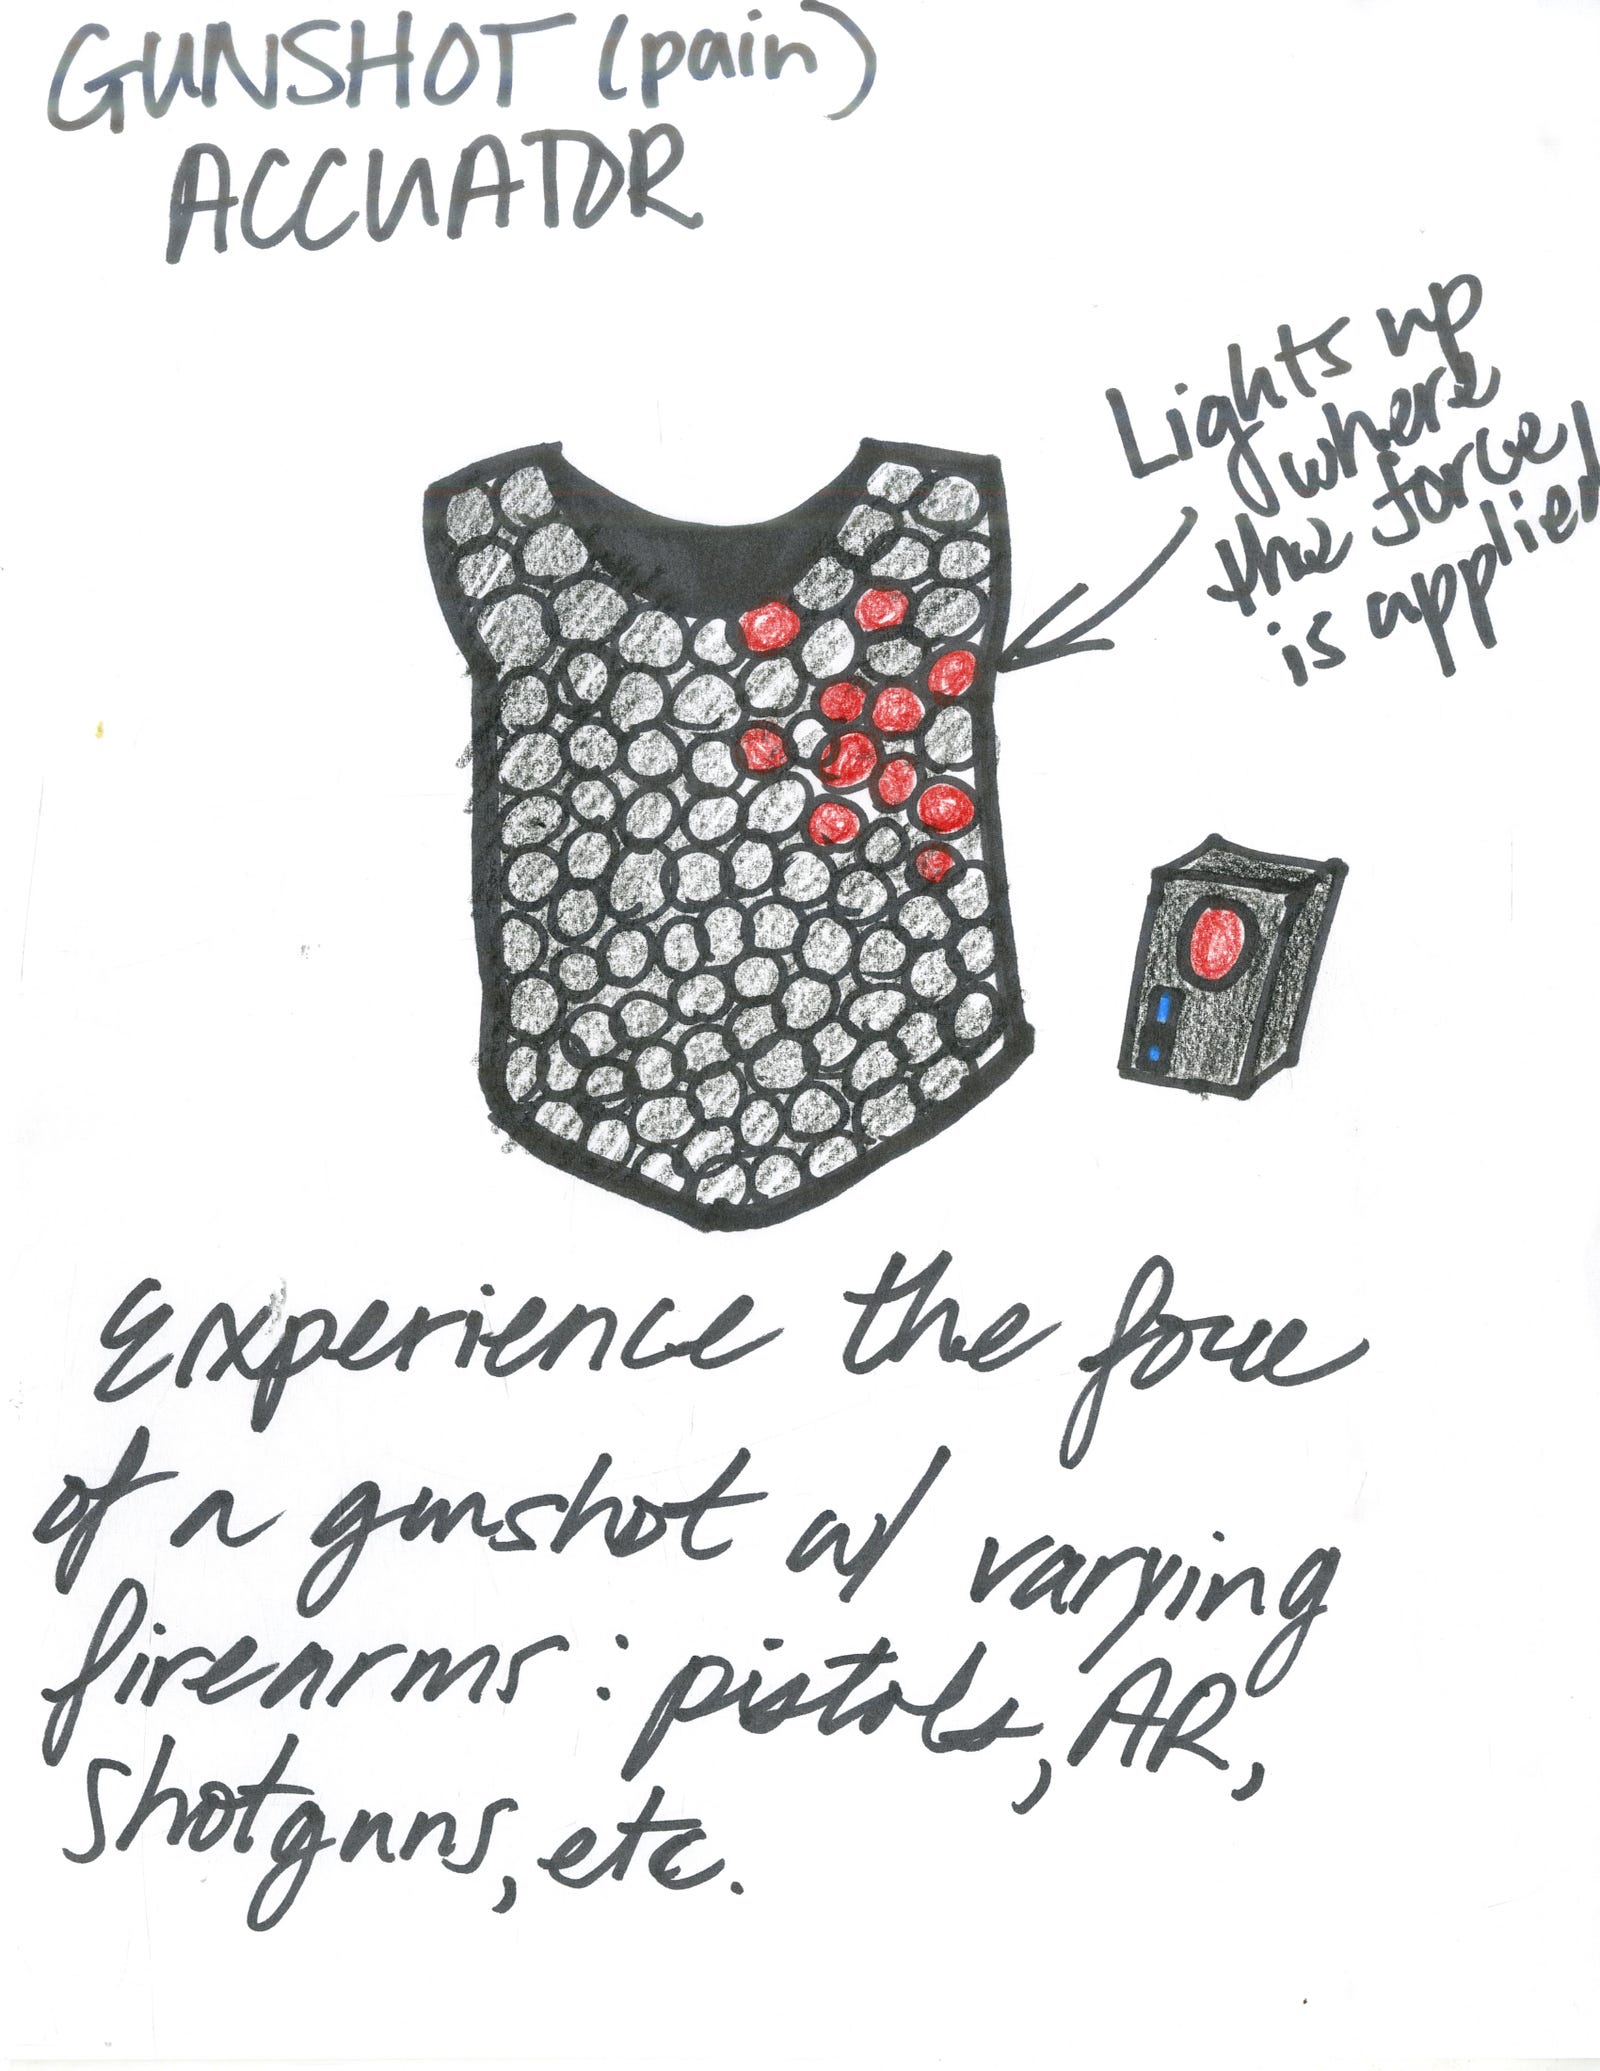 GUNSHOT (pain)
ACCUATOR
Lights up
where
the force
is applied
Experience the force
of a gunshot w/ varying
firearms: pistols, AR,
shotguns, etc.